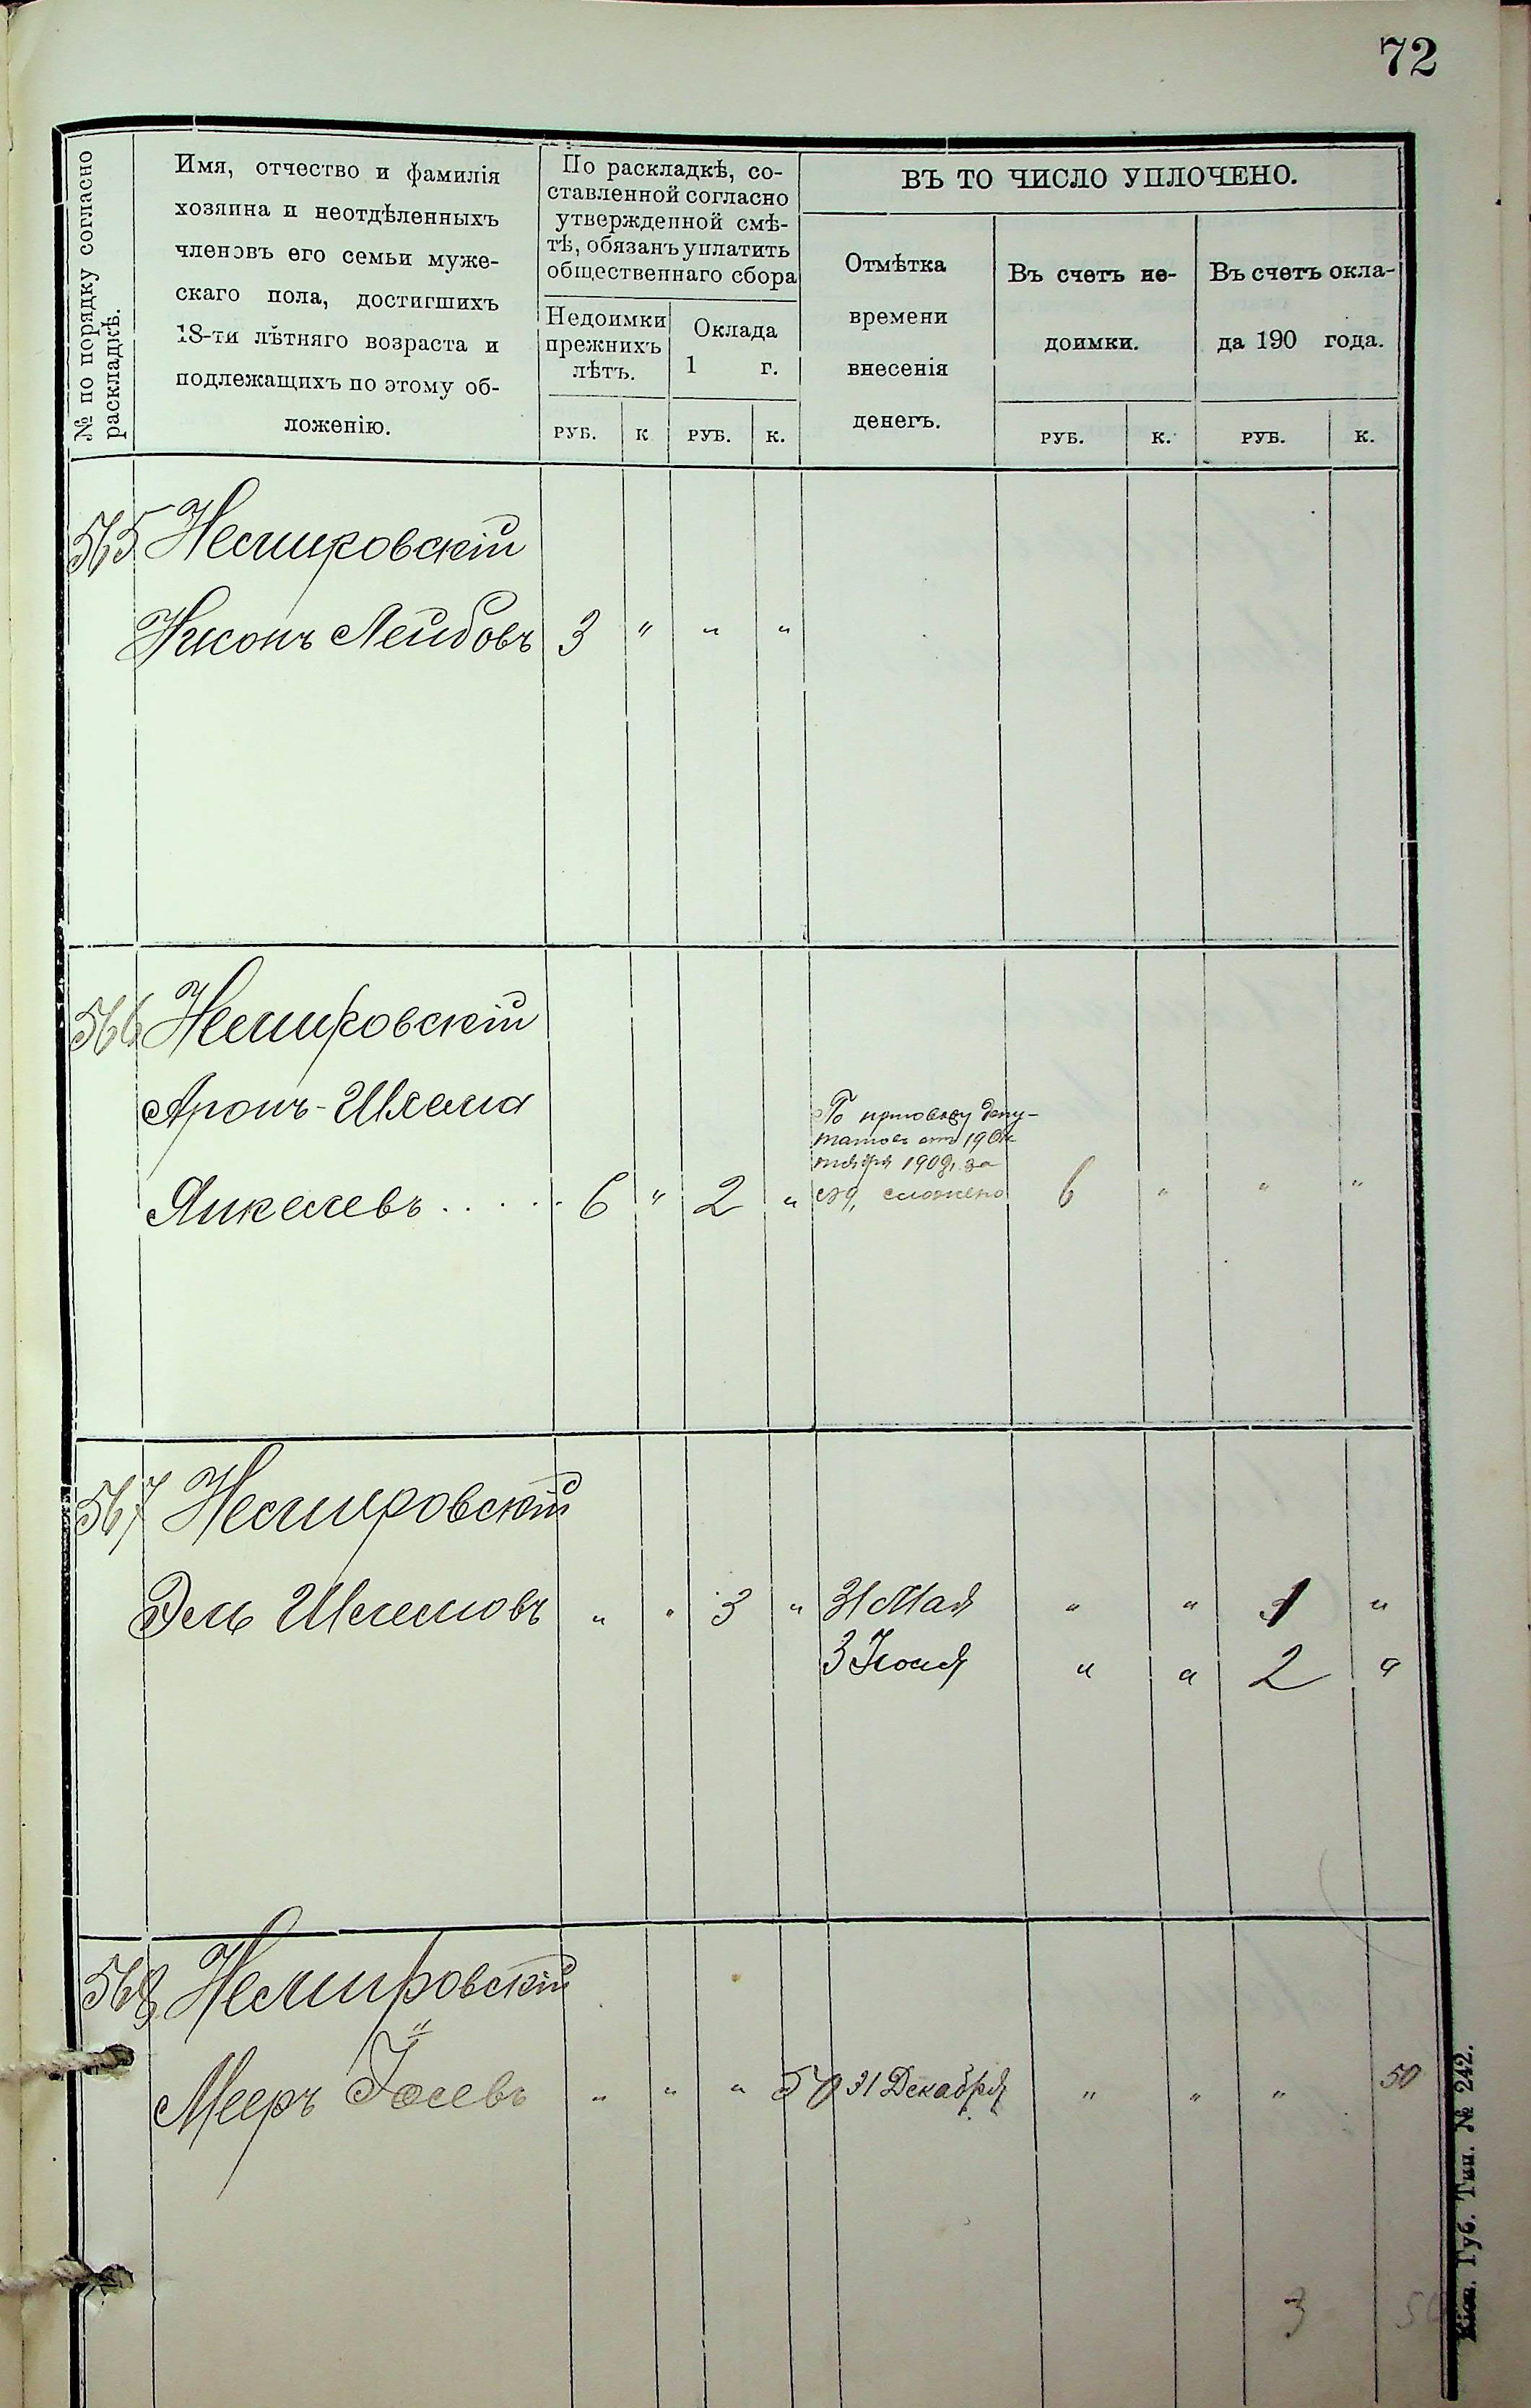 72
№ по порядку согласно
раскладкѣ.
Имя, отчество и фамилія
хозяина и неотдѣленныхъ
членовъ его семьи муже-
скаго пола, достигшихъ
18-ти лѣтняго возраста и
подлежащихъ по этому об-
ложенію.
По раскладкѣ, со-
ставленной согласно
утвержденной смѣ-
тѣ, обязанъ уплатить
общественнаго сбора
Недоимки
прежнихъ
лѣтъ.
Оклада
1 г.
РУБ. К РУБ. К.
ВЪ ТО ЧИСЛО УПЛОЧЕНО.
Отмѣтка
времени
внесенія
денегъ.
Въ счетъ не-
доимки.
Въ счетъ окла-
да 190 года.
РУБ. К. РУБ. К.
565 Немировскій
Нисонъ Лейбовъ 3 " " "
566 Немировскій
Аронъ-Шлема
Янкелевъ . . . . . 6 " 2 "
По приговору депу-
татовъ отъ 19
1909, за
сложено 6 " " "
567 Немировскій
Эль Шлемовъ " " 3 " 31 Мая " " 1 "
3 Іюля " " 2 "
568 Немировскій
Мееръ Іосевъ " " " 50 31 Декабря " " " 50
3 50
Кіев. Губ. Тип. № 242.